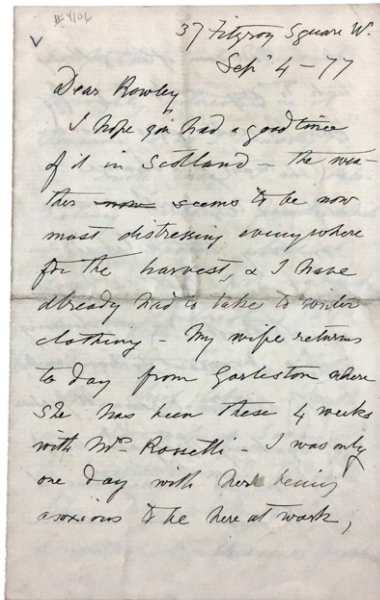 37 Fitzroy Square W.
Sep^r 4 - 77
Dear Rowley
I hope you had a good time
of it in Scotland - the wea-
ther now seems to be now
most distressing everywhere
for the harvest, & I have
already had to take to winter
clothing - My wife returns
to day from Gorleston where
she has been these 4 weeks
with Mrs Rossetti - I was only
one day with her being
anxious to be here at work,